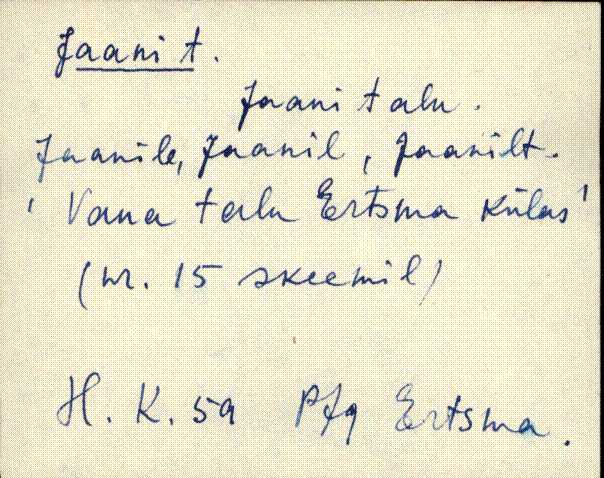 Jaani t.
Jaani talu.
Jaanile, Jaanil, Jaanilt.
' Vana talu Ertsma külas'
(nr. 15 skeemil)
H. K. 59 Ertsma.